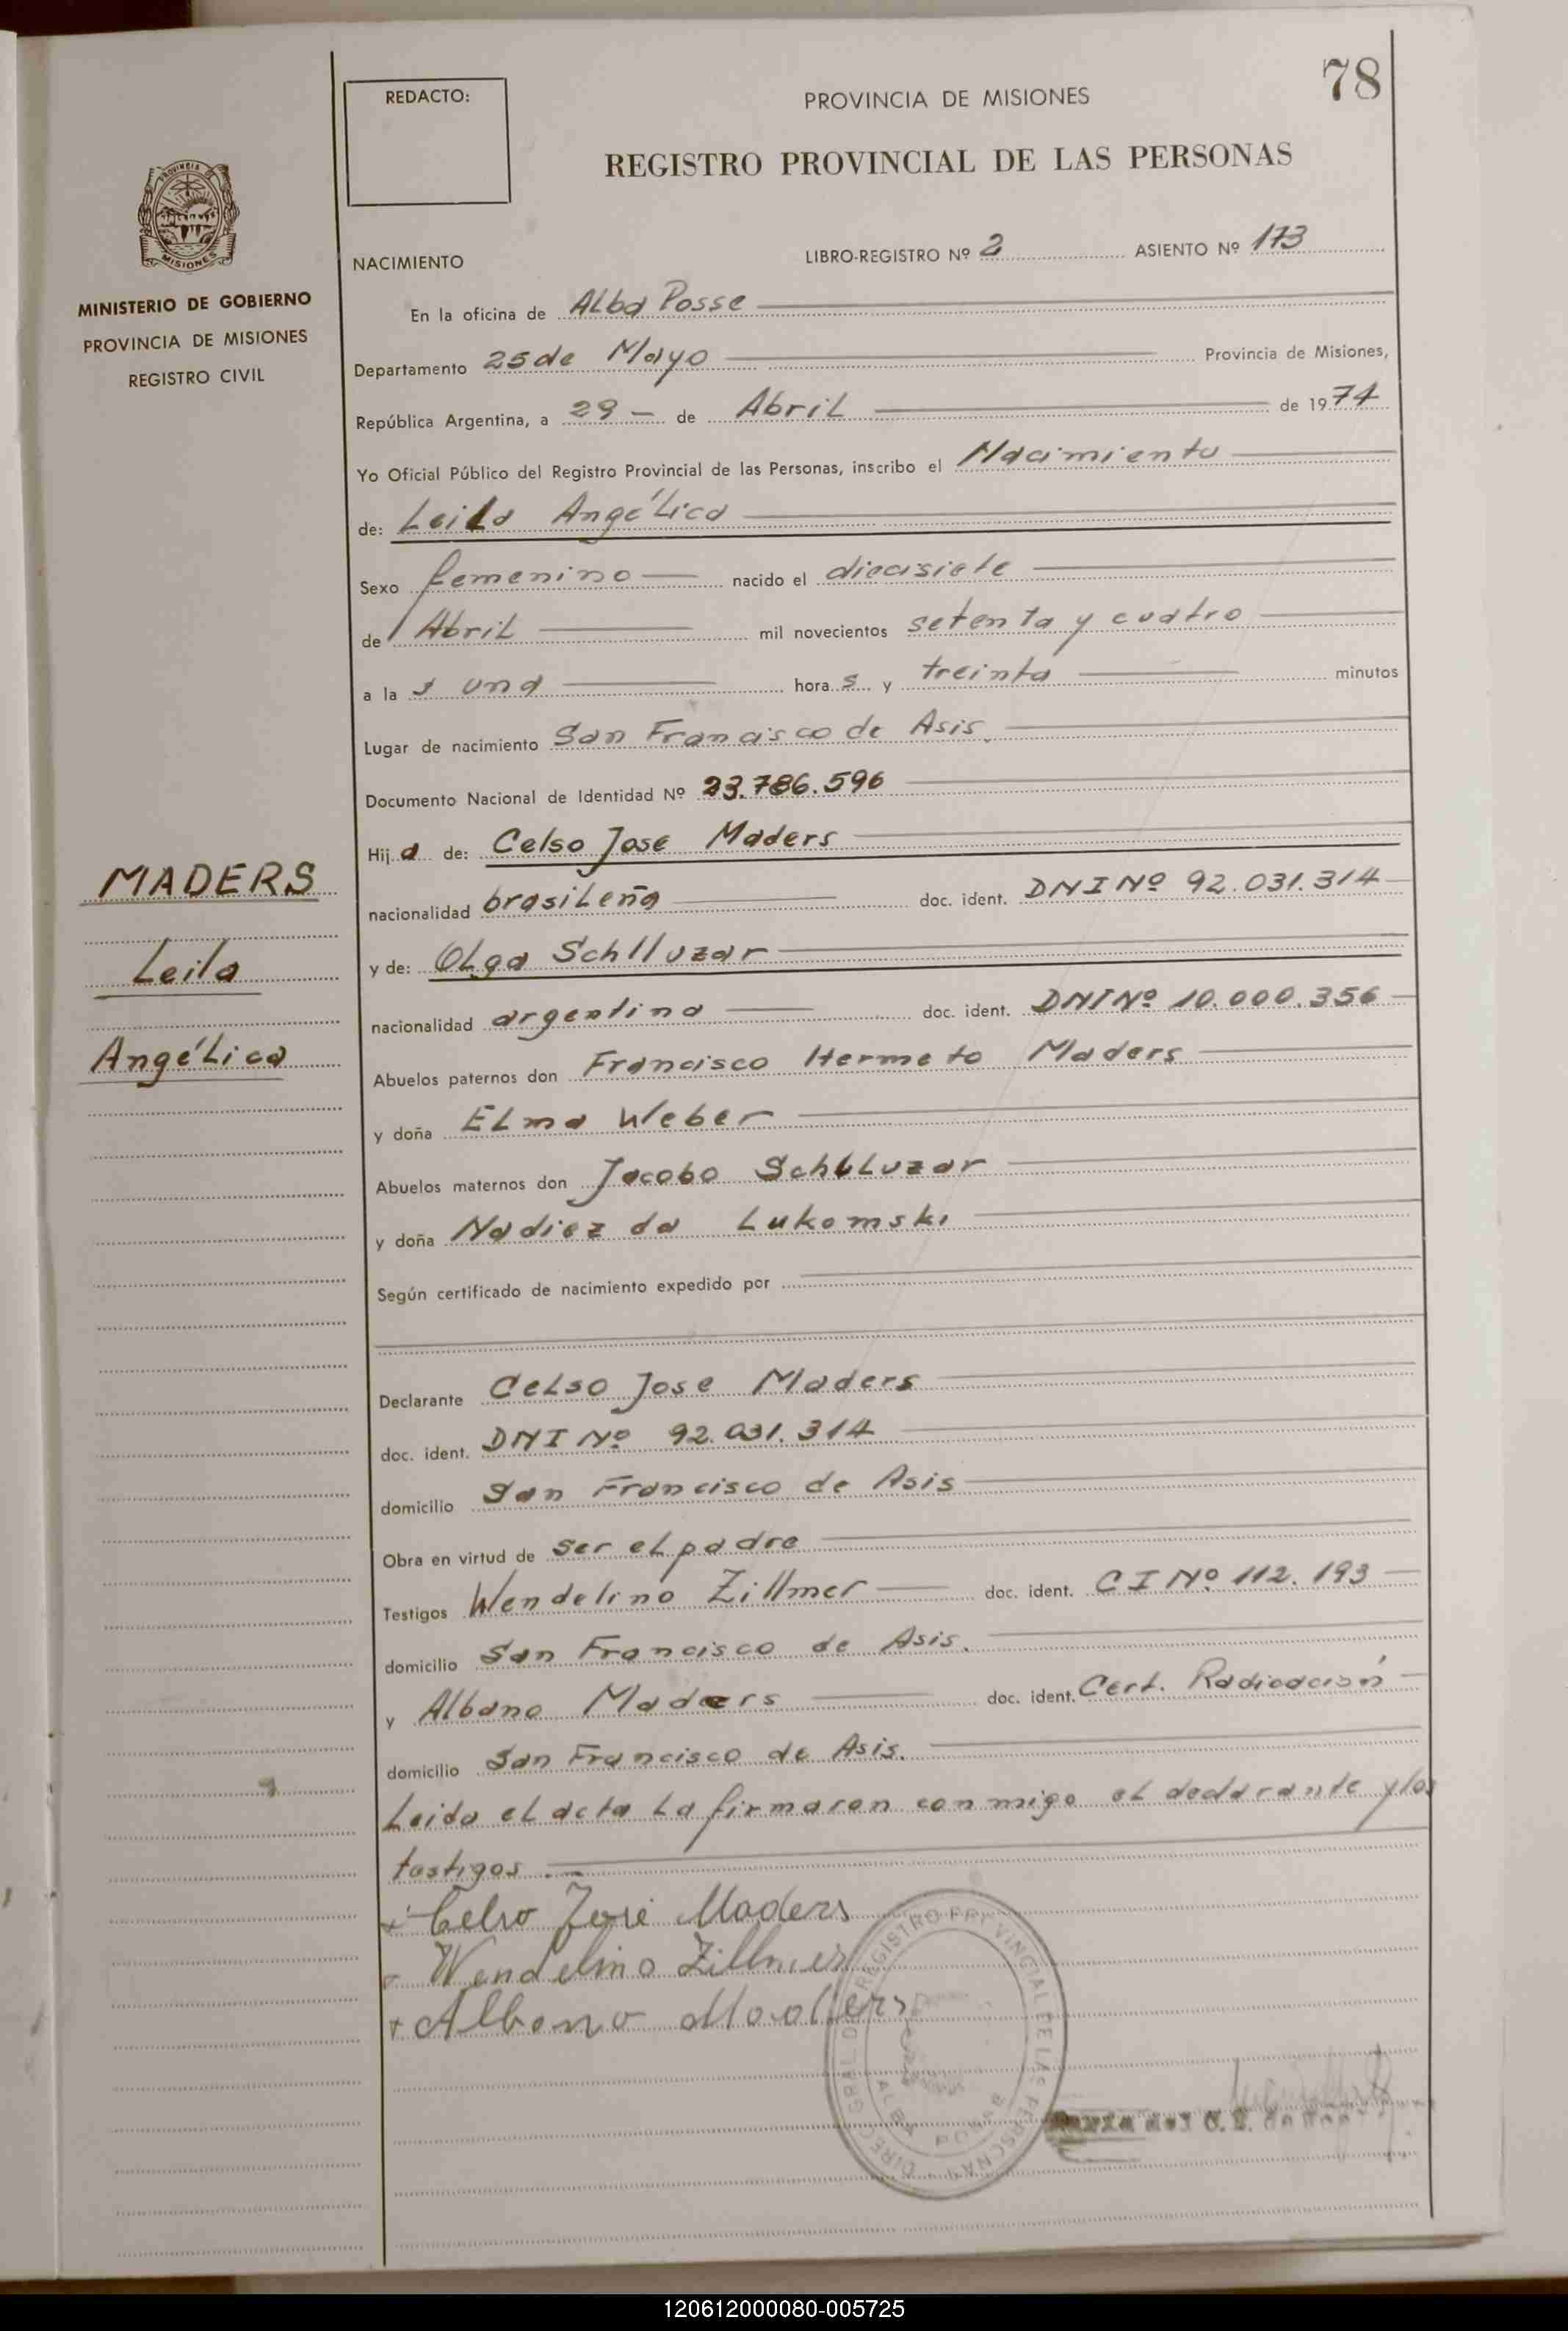 78
REDACTO:
PROVINCIA DE MISIONES
REGISTRO PROVINCIAL DE LAS PERSONAS
PROVINCIA DE
MISIONES
MINISTERIO DE GOBIERNO
PROVINCIA DE MISIONES
REGISTRO CIVIL
NACIMIENTO LIBRO-REGISTRO Nº 2 ASIENTO Nº 173
En la oficina de Alba Posse
Departamento 25 de Mayo Provincia de Misiones,
República Argentina, a 29 - de Abril de 1974
Yo Oficial Público del Registro Provincial de las Personas, inscribo el Nacimiento
de: Leila Angélica
Sexo femenino nacido el diecisiete
de Abril mil novecientos setenta y cuatro
a la s una hora s y treinta minutos
Lugar de nacimiento San Francisco de Asis.
Documento Nacional de Identidad Nº 23.786.596
Hij a de: Celso Jose Maders
nacionalidad brasileña doc. ident. DNI Nº 92.031.314
y de: Olga Schlluzar
nacionalidad argentina doc. ident. DNI Nº 10.000.356
Abuelos paternos don Francisco Hermeto Maders
y doña Elma Weber
Abuelos maternos don Jacobo Schlluzar
y doña Nadiez da Lukomski
Según certificado de nacimiento expedido por
Declarante Celso Jose Maders
doc. ident. DNI Nº 92.031.314
domicilio San Francisco de Asis
Obra en virtud de ser el padre
Testigos Wendelino Zillmer doc. ident. CI Nº 112.193
domicilio San Francisco de Asis.
y Albano Maders doc. ident. Cert. Radicación
domicilio San Francisco de Asis.
Leida el acta la firmaron conmigo el declarante y los
testigos.-
Celso José Maders
Wendelino Zillmer
Albano Maders
MADERS
Leila
Angélica
DIREC. GRAL. DEL REGISTRO PROVINCIAL DE LAS PERSONAS
ALBA POSSE
120612000080-005725